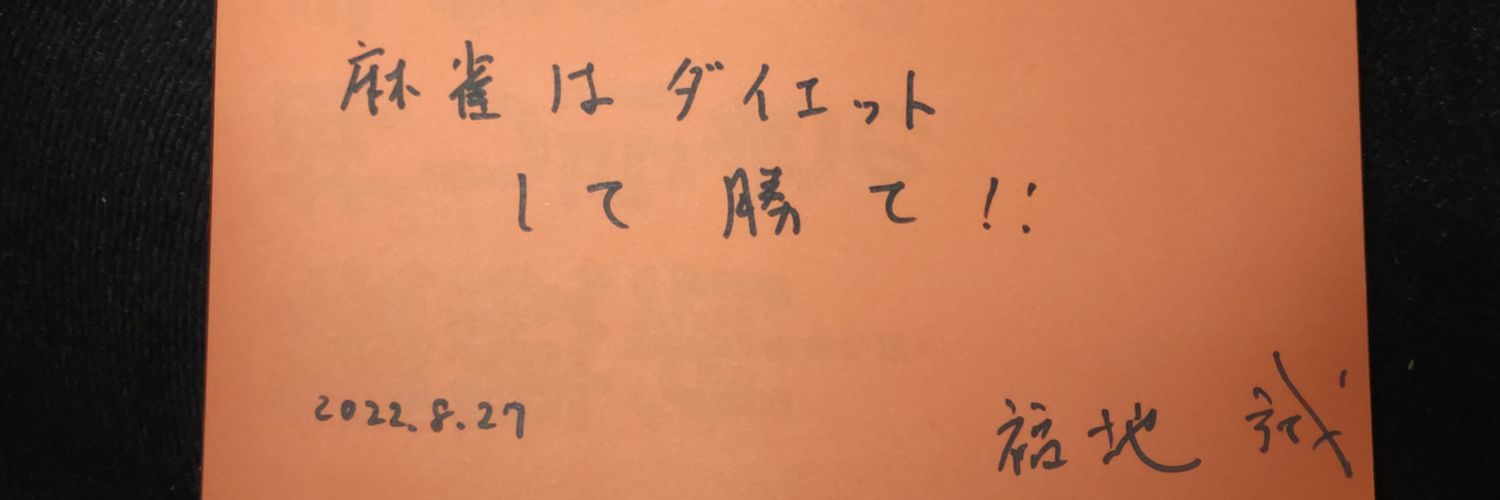 麻雀はダイエット
して勝て!!
2022.8.27
福地 誠